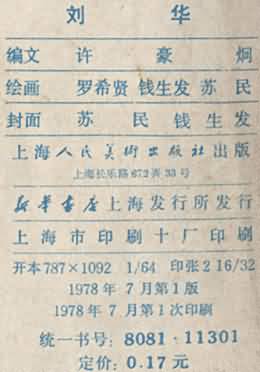 刘 华
编文 许 豪 炯
绘画 罗希贤 钱生发 苏 民
封面 苏 民 钱 生 发
上海人民美術出版社出版
上海长乐路672弄33号
新華書店上海发行所发行
上海市印刷十厂印刷
开本787×1092 1/64 印张2 16/32
1978年 7月第1版
1978年 7月第1次印刷
统一书号: 8081·11301
定价: 0.17元